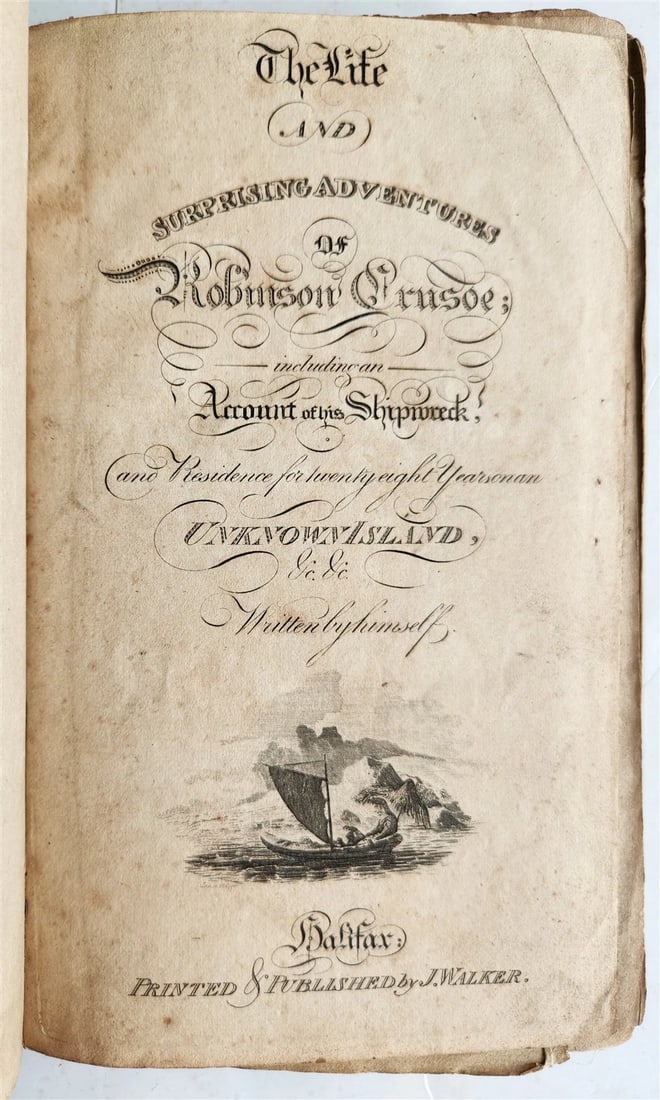 The Life
AND
SURPRISING ADVENTURES
OF
Robinson Crusoe;
including an
Account of his Shipwreck,
and Residence for twenty eight Years on an
UNKNOWN ISLAND,
&c. &c.
Written by himself.
Halifax:
PRINTED & PUBLISHED by J. WALKER.